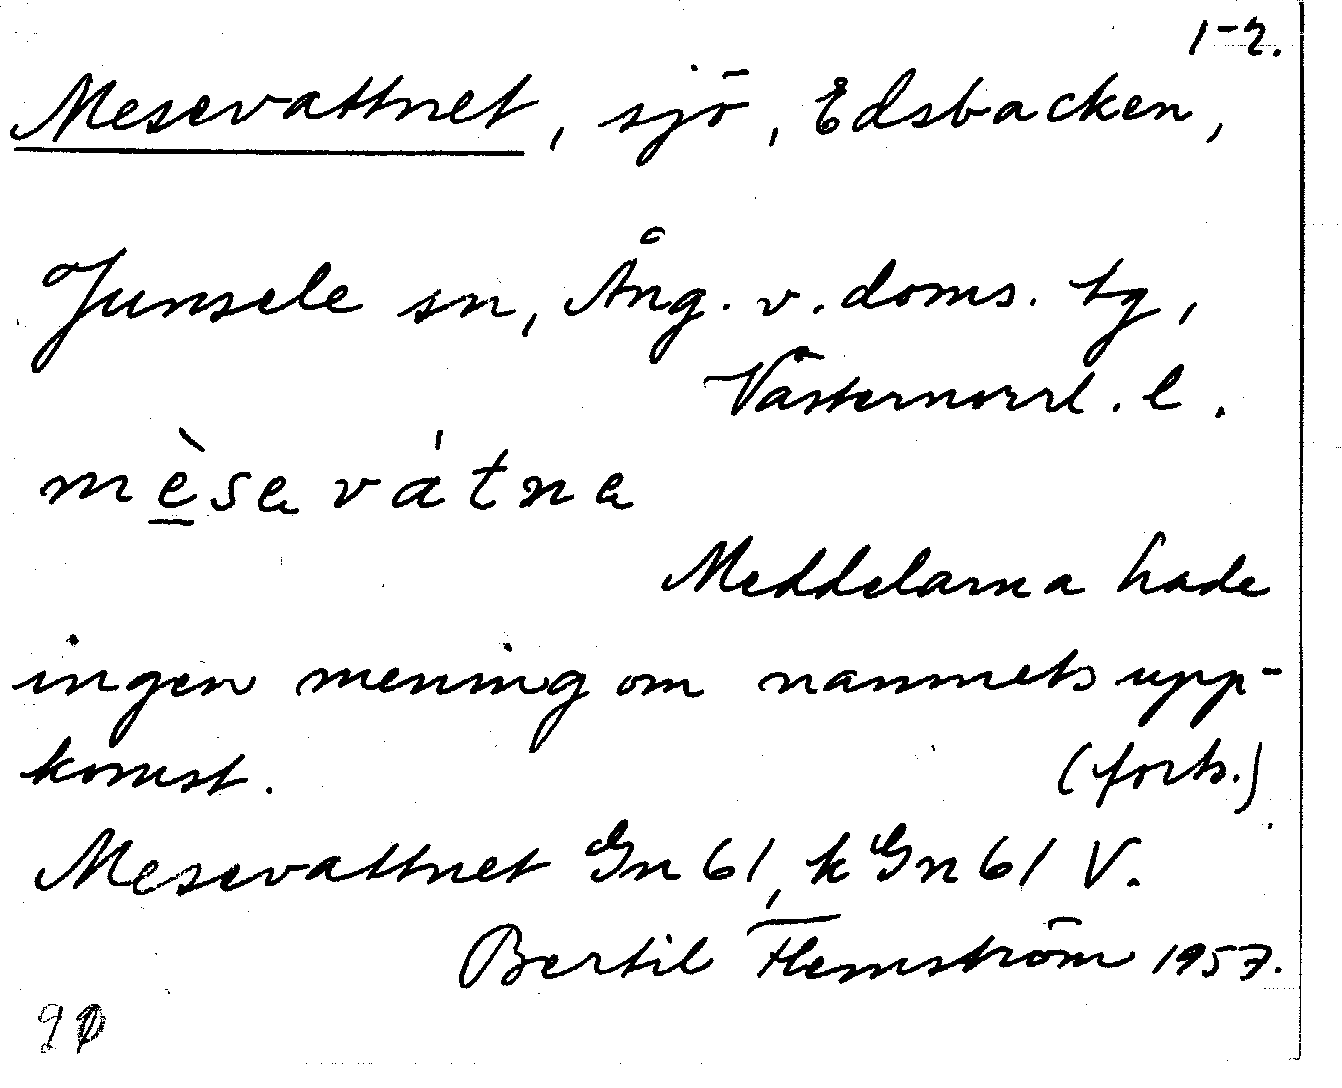 1-2.
Mesevattnet, sjö, Edsbacken,
Junsele sn, Ång. v. doms. tg,
Västernorrl. l.
mèsevátne
Meddelarna hade
ingen mening om namnets upp-
komst. (forts.)
Mesevattnet Gn 61, k Gn 61 V.
Bertil Flemström 1957.